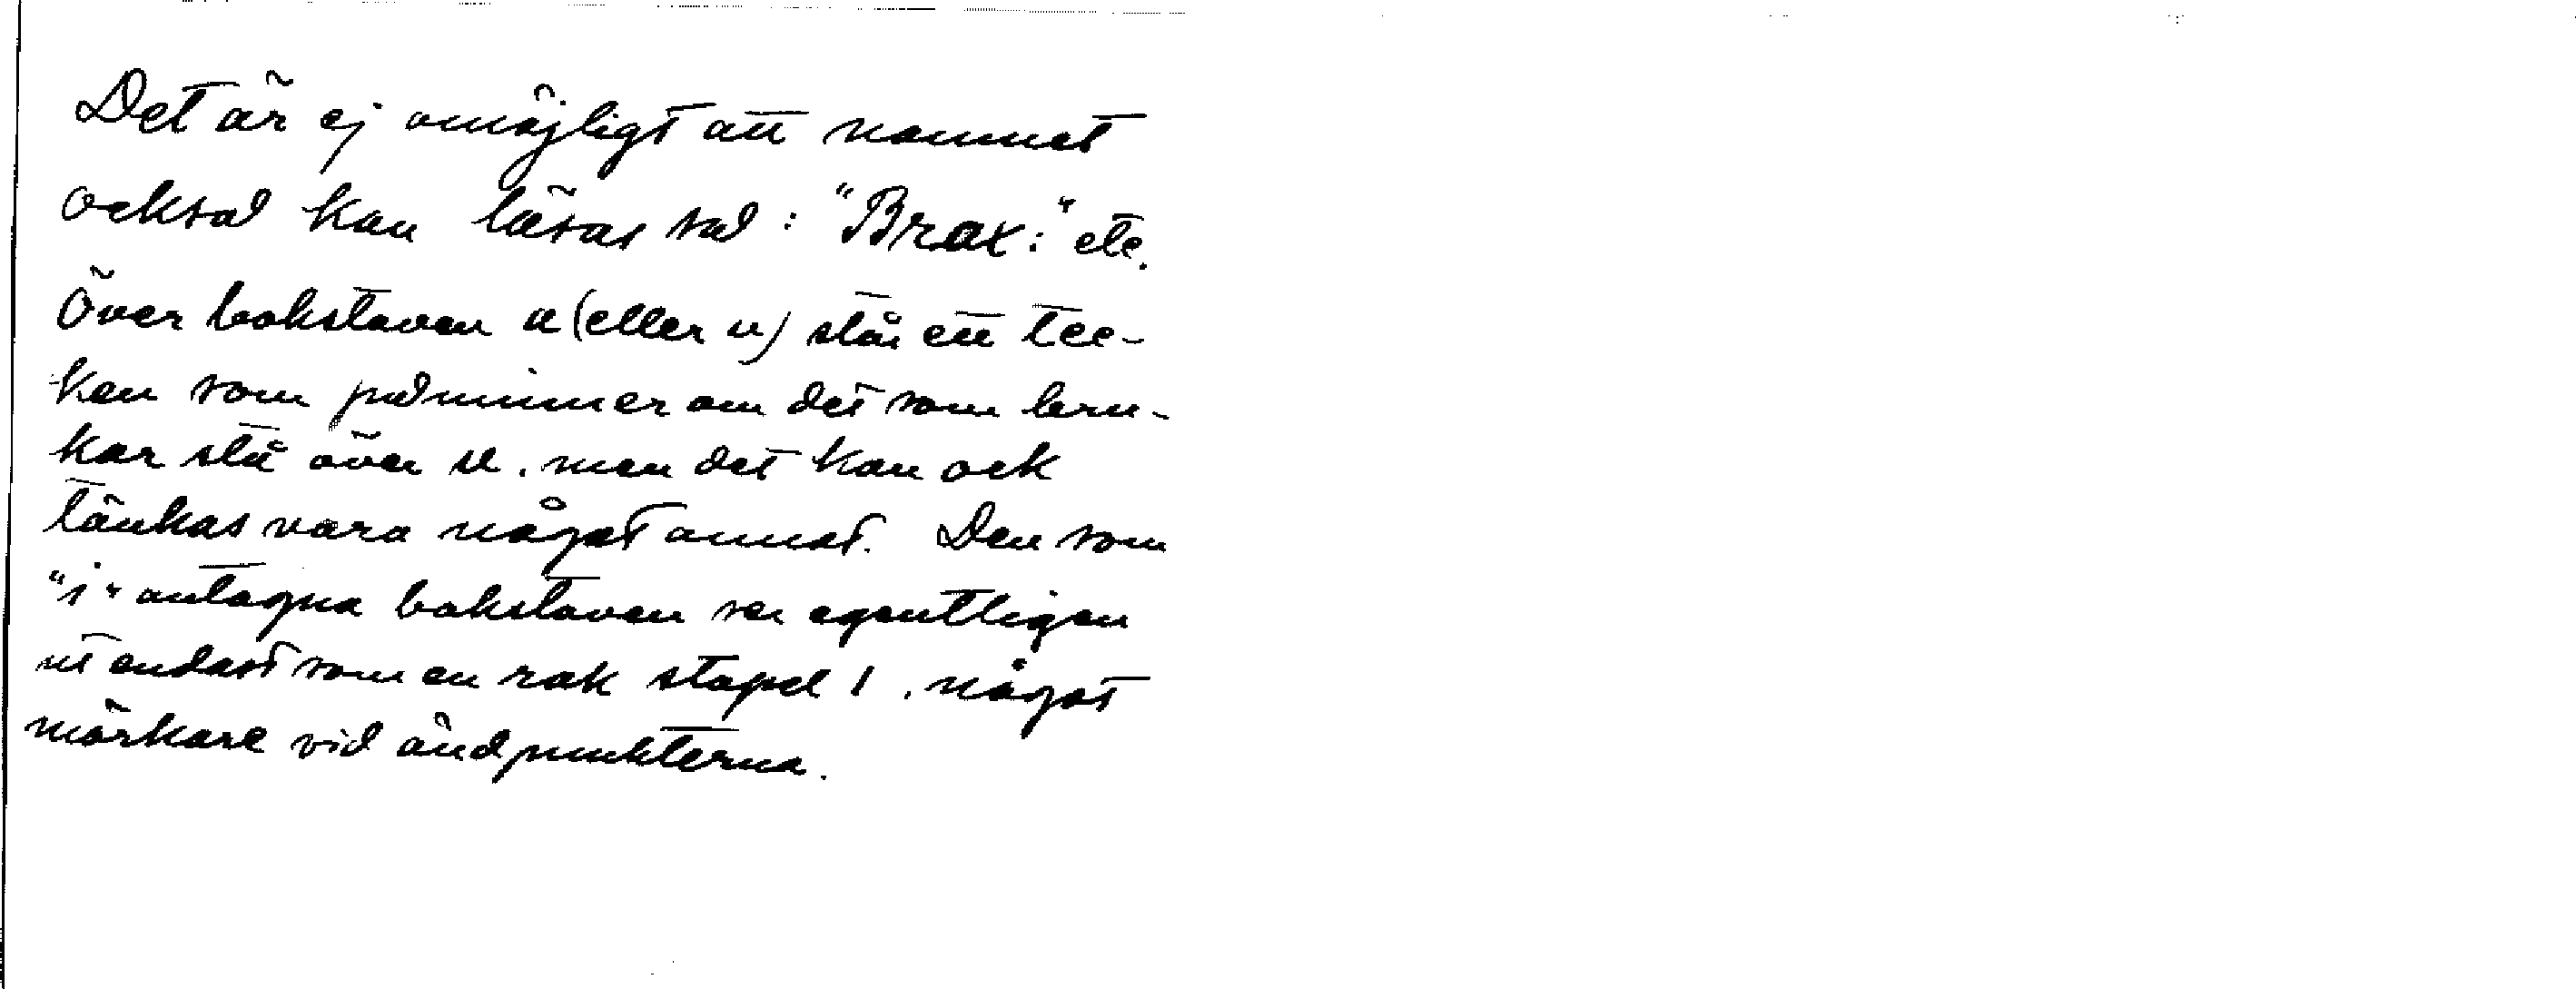 Det är ej omöjligt att namnet
också kan läsas så: "Brax:" etc.
Över bokstaven a (eller u) står ett tec-
ken som påminner om det som bru-
kar stå över u. men det kan ock
tänkas vara något annat. Den som
"i" antagna bokstaven ser egentligen
ut endast som en rak stapel I, något
mörkare vid ändpunkterna.